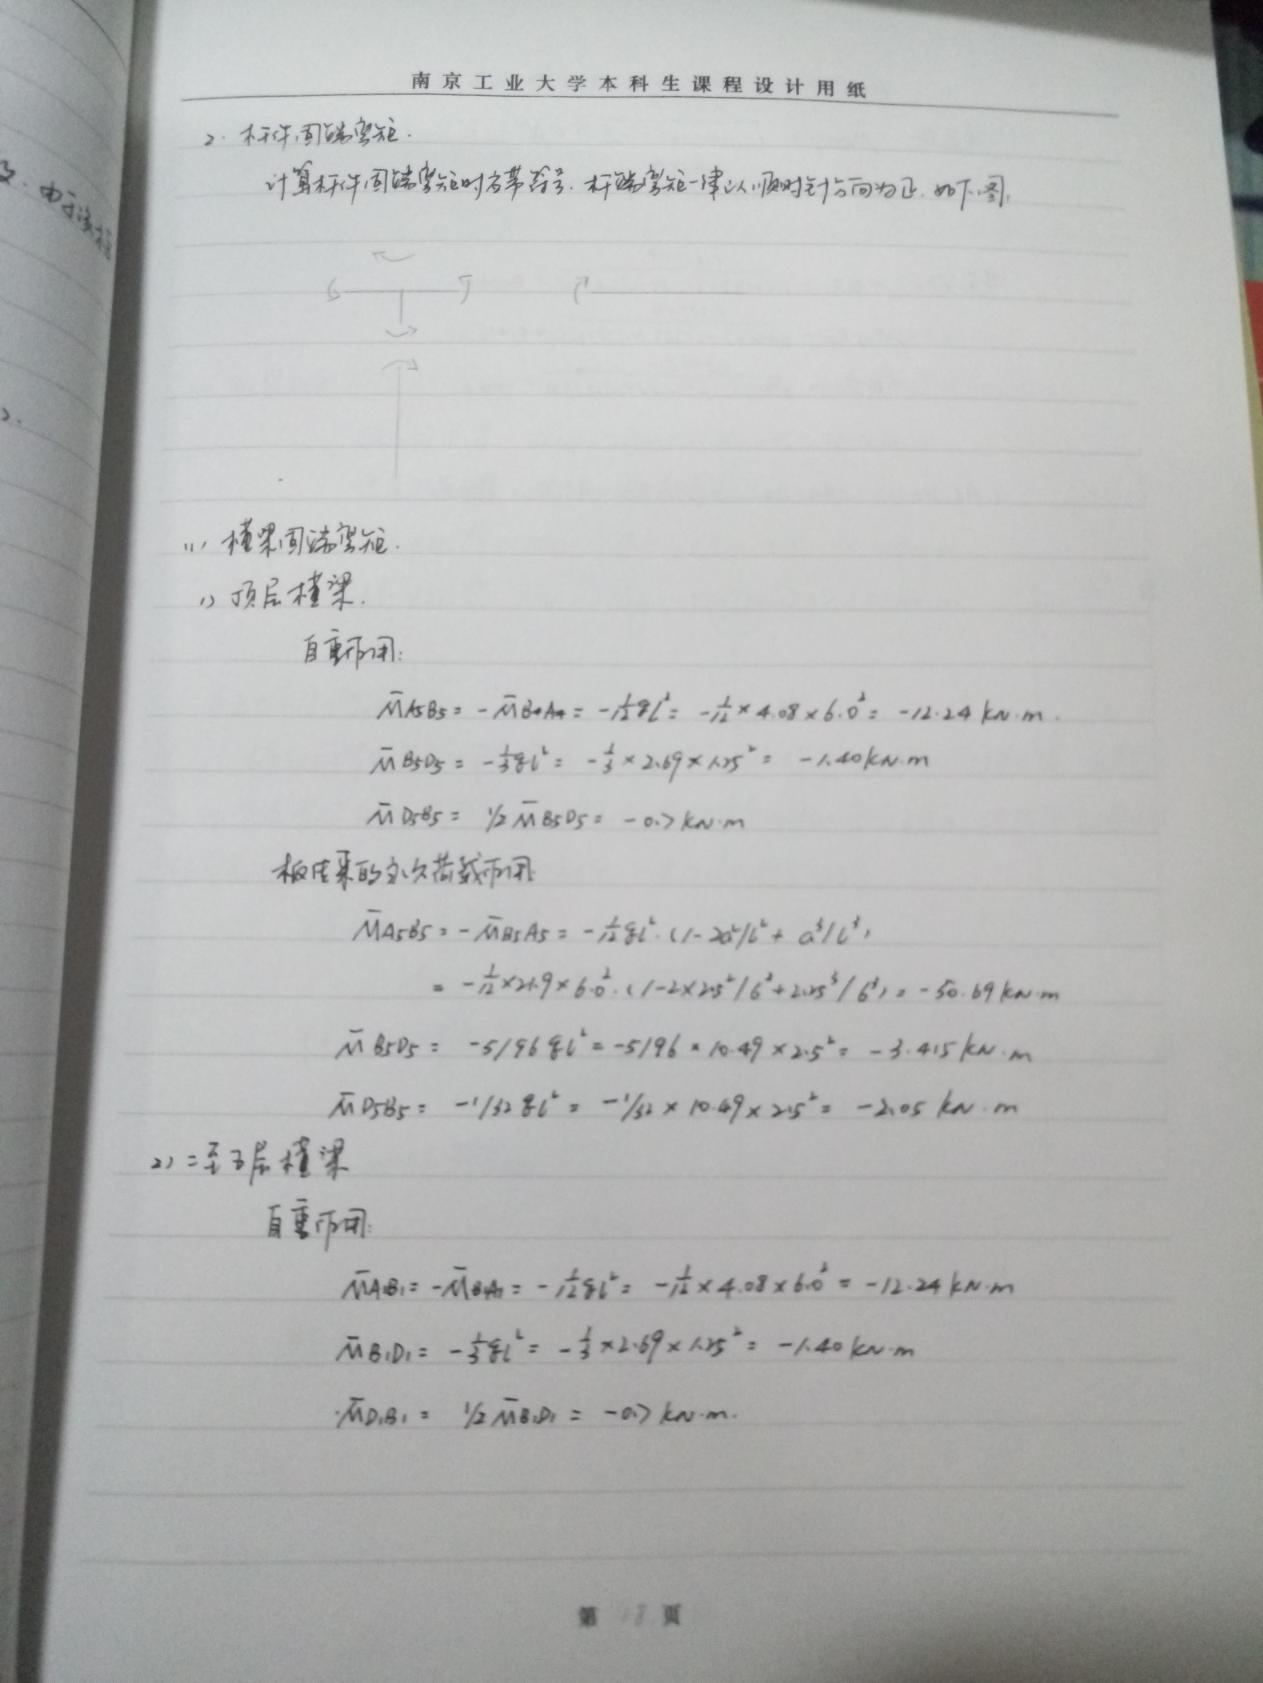 南京工业大学本科生课程设计用纸
2. 杆件固端弯矩.
计算杆件固端弯矩时应带符号. 杆端弯矩一律以顺时针方向为正. 如下图.
(1) 横梁固端弯矩.
1) 顶层横梁.
自重作用:
M̄A5B5 = -M̄B4A4 = -1/12 ql² = -1/12 × 4.08 × 6.0² = -12.24 kN·m.
M̄B5D5 = -1/3 ql² = -1/3 × 2.69 × 1.25² = -1.40 kN·m
M̄D5B5 = 1/2 M̄B5D5 = -0.7 kN·m
板传来的永久荷载作用:
M̄A5B5 = -M̄B5A5 = -1/12 ql²·(1-2a²/l² + a³/l³)
= -1/12 × 21.9 × 6.0²·(1-2×2.5²/6²+2.25³/6³) = -50.69 kN·m
M̄B5D5 = -5/96 ql² = -5/96 × 10.49 × 2.5² = -3.415 kN·m
M̄D5B5 = -1/32 ql² = -1/32 × 10.49 × 2.5² = -2.05 kN·m
2) 二至五层横梁
自重作用:
M̄A1B1 = -M̄B1A1 = -1/12 ql² = -1/12 × 4.08 × 6.0² = -12.24 kN·m
M̄B1D1 = -1/3 ql² = -1/3 × 2.69 × 1.25² = -1.40 kN·m
M̄D1B1 = 1/2 M̄B1D1 = -0.7 kN·m.
第 18 页